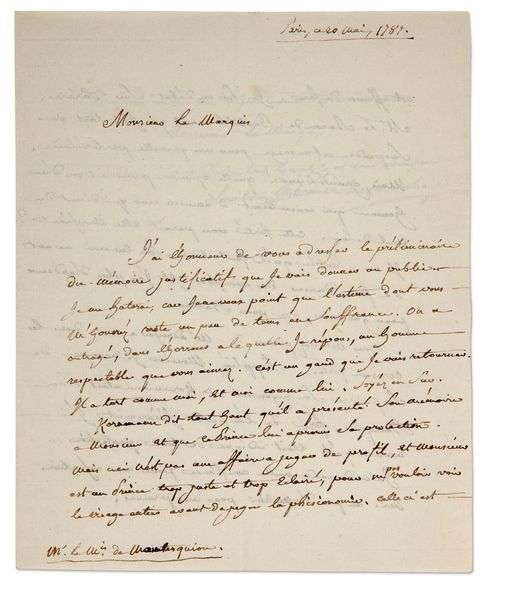 Paris, ce 20 mai, 1787.
Monsieur Le Marquis
J'ai l'honneur de vous adresser le préliminaire
du mémoire justificatif que Je vais donner au public.
Je me haterai, car Je ne veux point que l'estime dont vous
m'honorés reste un peu de tems en souffrance. On a
outragé, dans l'horreur a laquelle Je repons, un homme
respectable que vous aimez. c'est un gand que Je vais retourner.
Il a tort comme moi, et moi comme lui. Soyez en sûr.
Kornmann dit tout haut qu'il a présenté Son mémoire
a Monsieur et que ce Prince lui a promis Sa protection.
mais ceci n'est pas une affaire a juger de profil, et Monsieur
est un Prince trop juste et trop éclairé, pour ne pas vouloir voir
le visage entier avant de juger la phisionomie. celle ci est
Mr. le Mis. de Montesquiou.